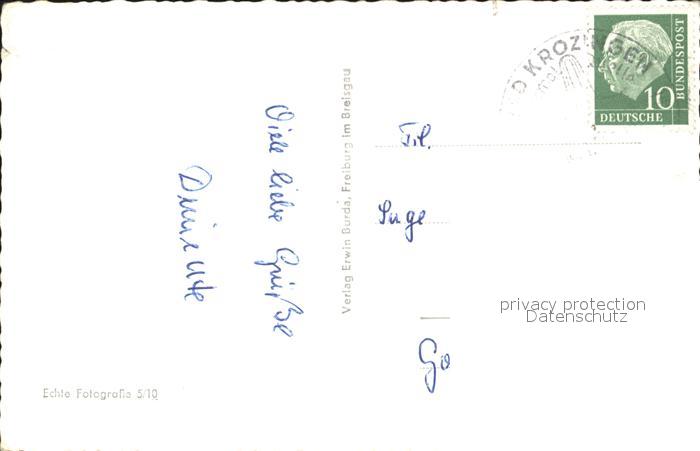 BAD KROZINGEN
10
DEUTSCHE
BUNDESPOST
Viele liebe Grüße
Deine Ute
Verlag Erwin Burda, Freiburg im Breisgau
Frl.
Inge
Go
privacy protection
Datenschutz
Echte Fotografie 5/10